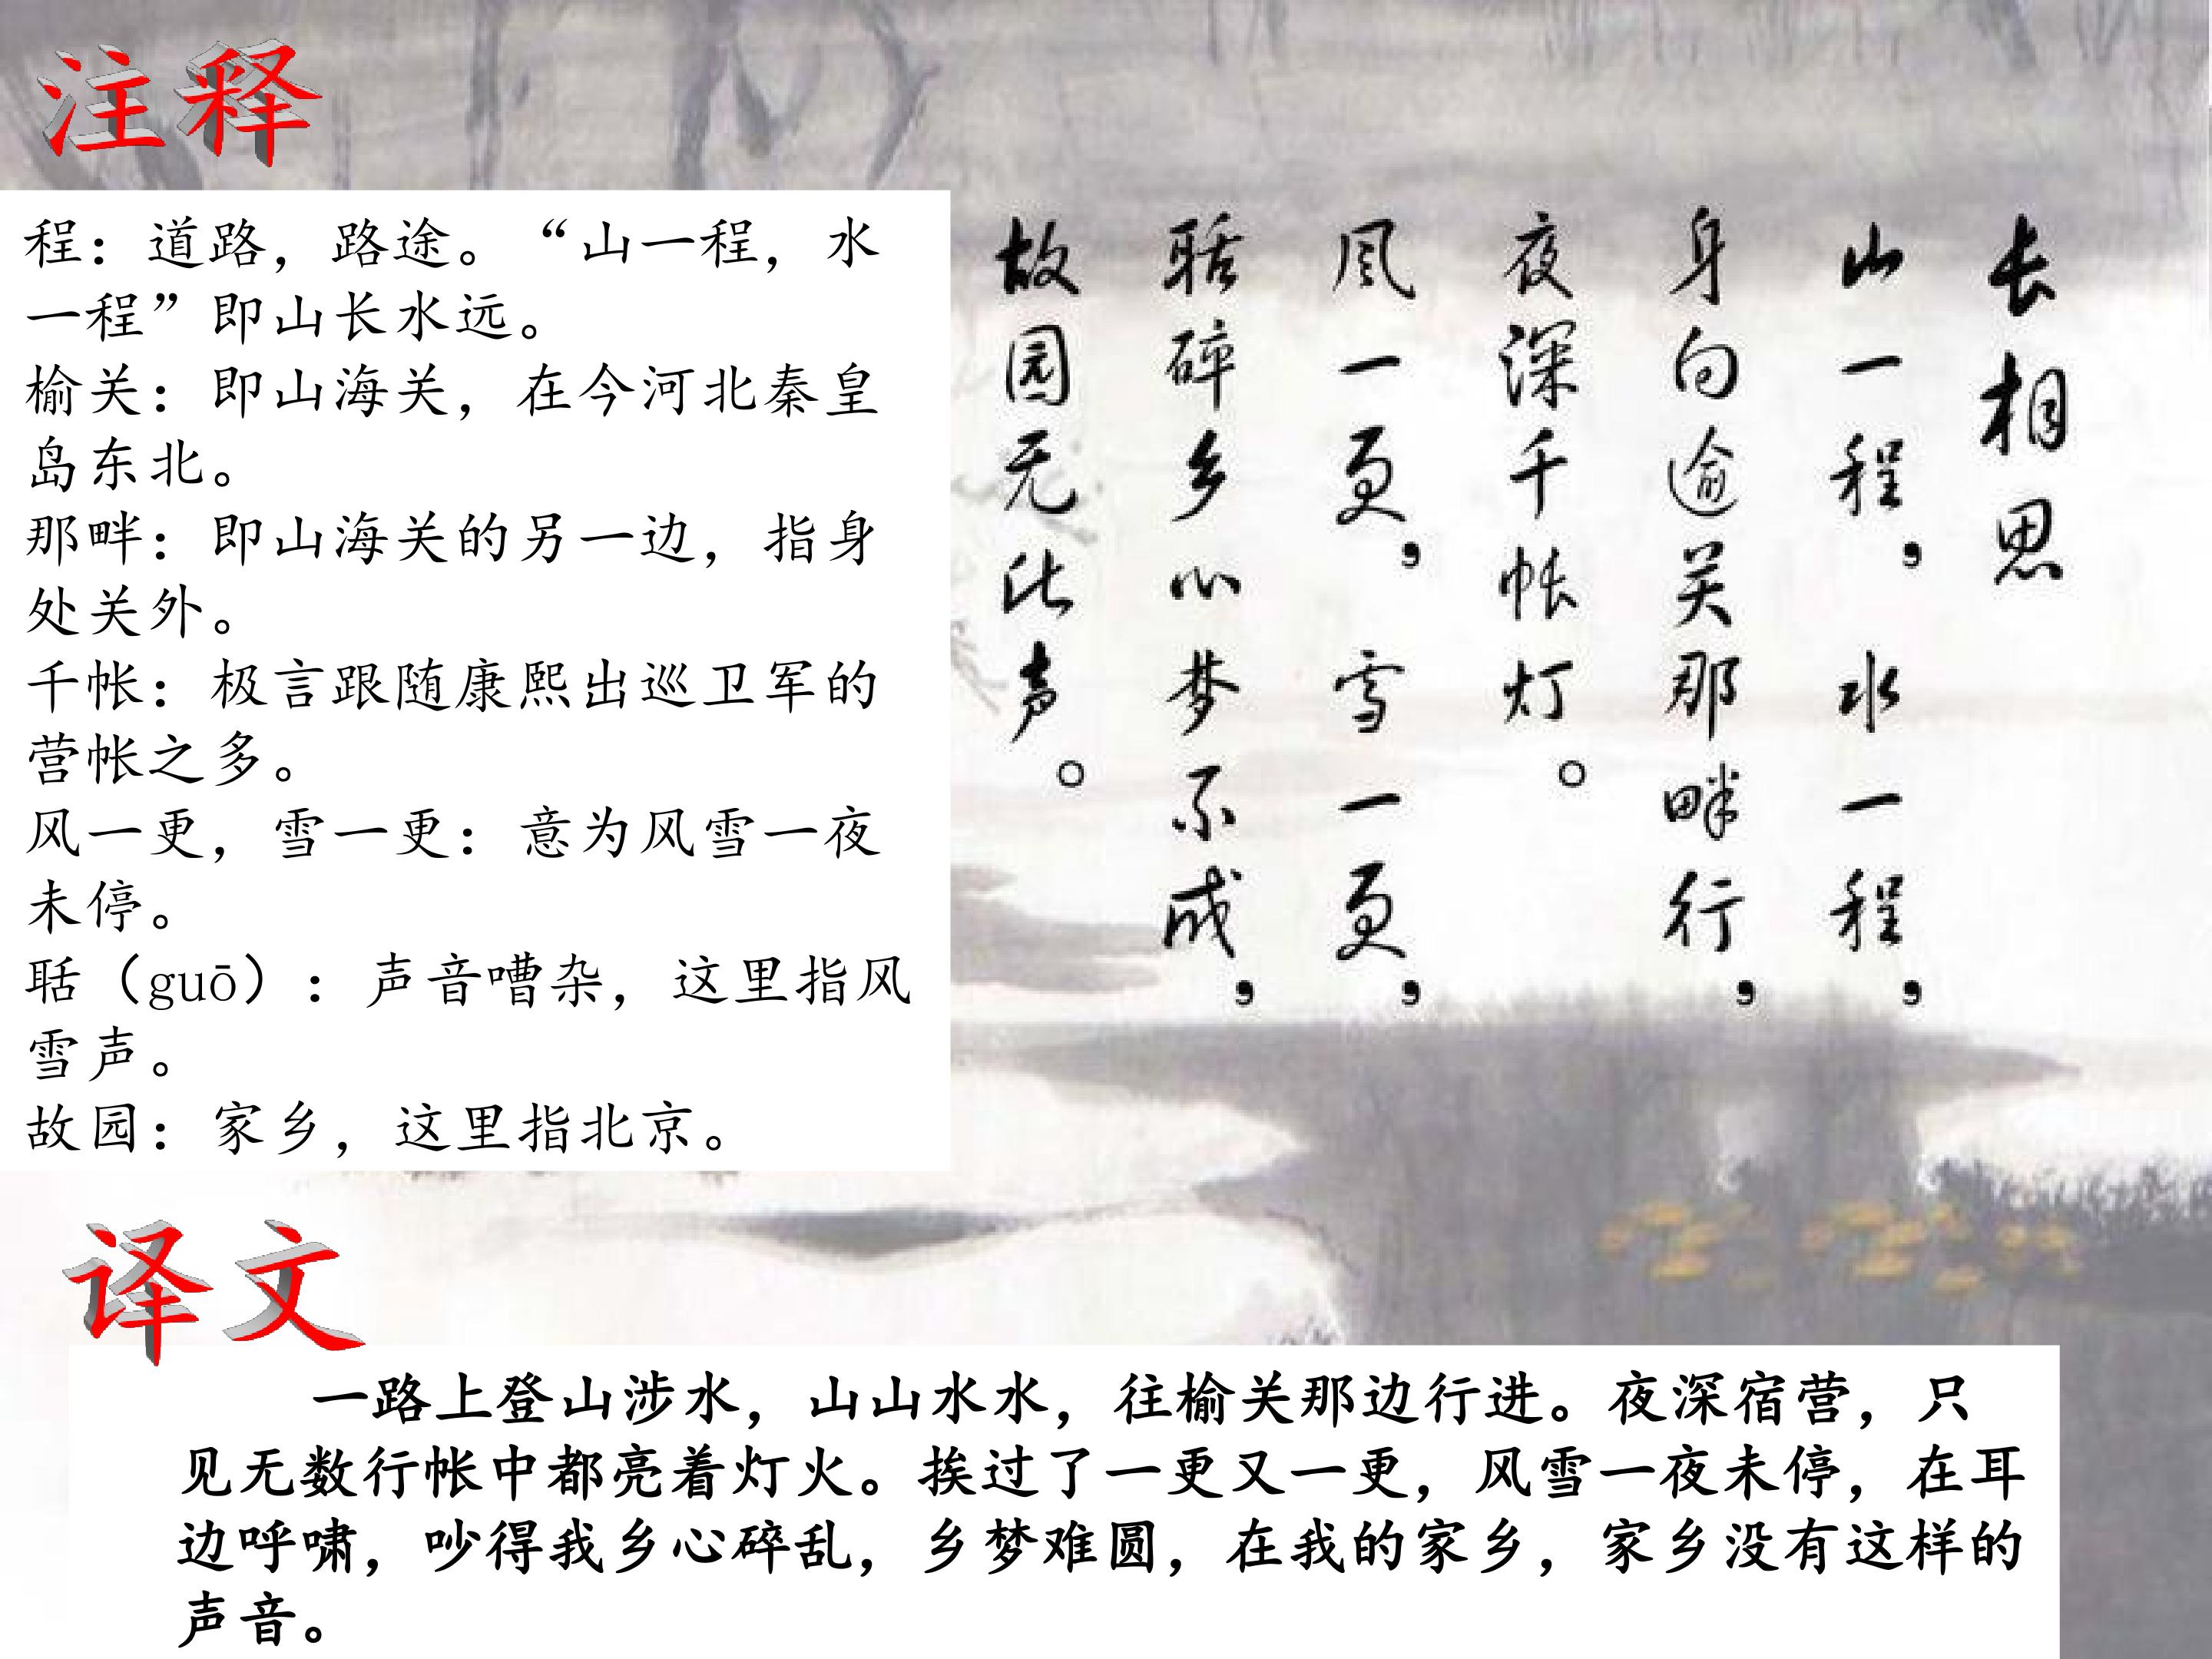 注释
程：道路，路途。“山一程，水
一程”即山长水远。
榆关：即山海关，在今河北秦皇
岛东北。
那畔：即山海关的另一边，指身
处关外。
千帐：极言跟随康熙出巡卫军的
营帐之多。
风一更，雪一更：意为风雪一夜
未停。
聒（guō）：声音嘈杂，这里指风
雪声。
故园：家乡，这里指北京。
长相思
山一程，水一程，
身向逾关那畔行，
夜深千帐灯。
风一更，雪一更，
聒碎乡心梦不成，
故园无此声。
译文
一路上登山涉水，山山水水，往榆关那边行进。夜深宿营，只
见无数行帐中都亮着灯火。挨过了一更又一更，风雪一夜未停，在耳
边呼啸，吵得我乡心碎乱，乡梦难圆，在我的家乡，家乡没有这样的
声音。